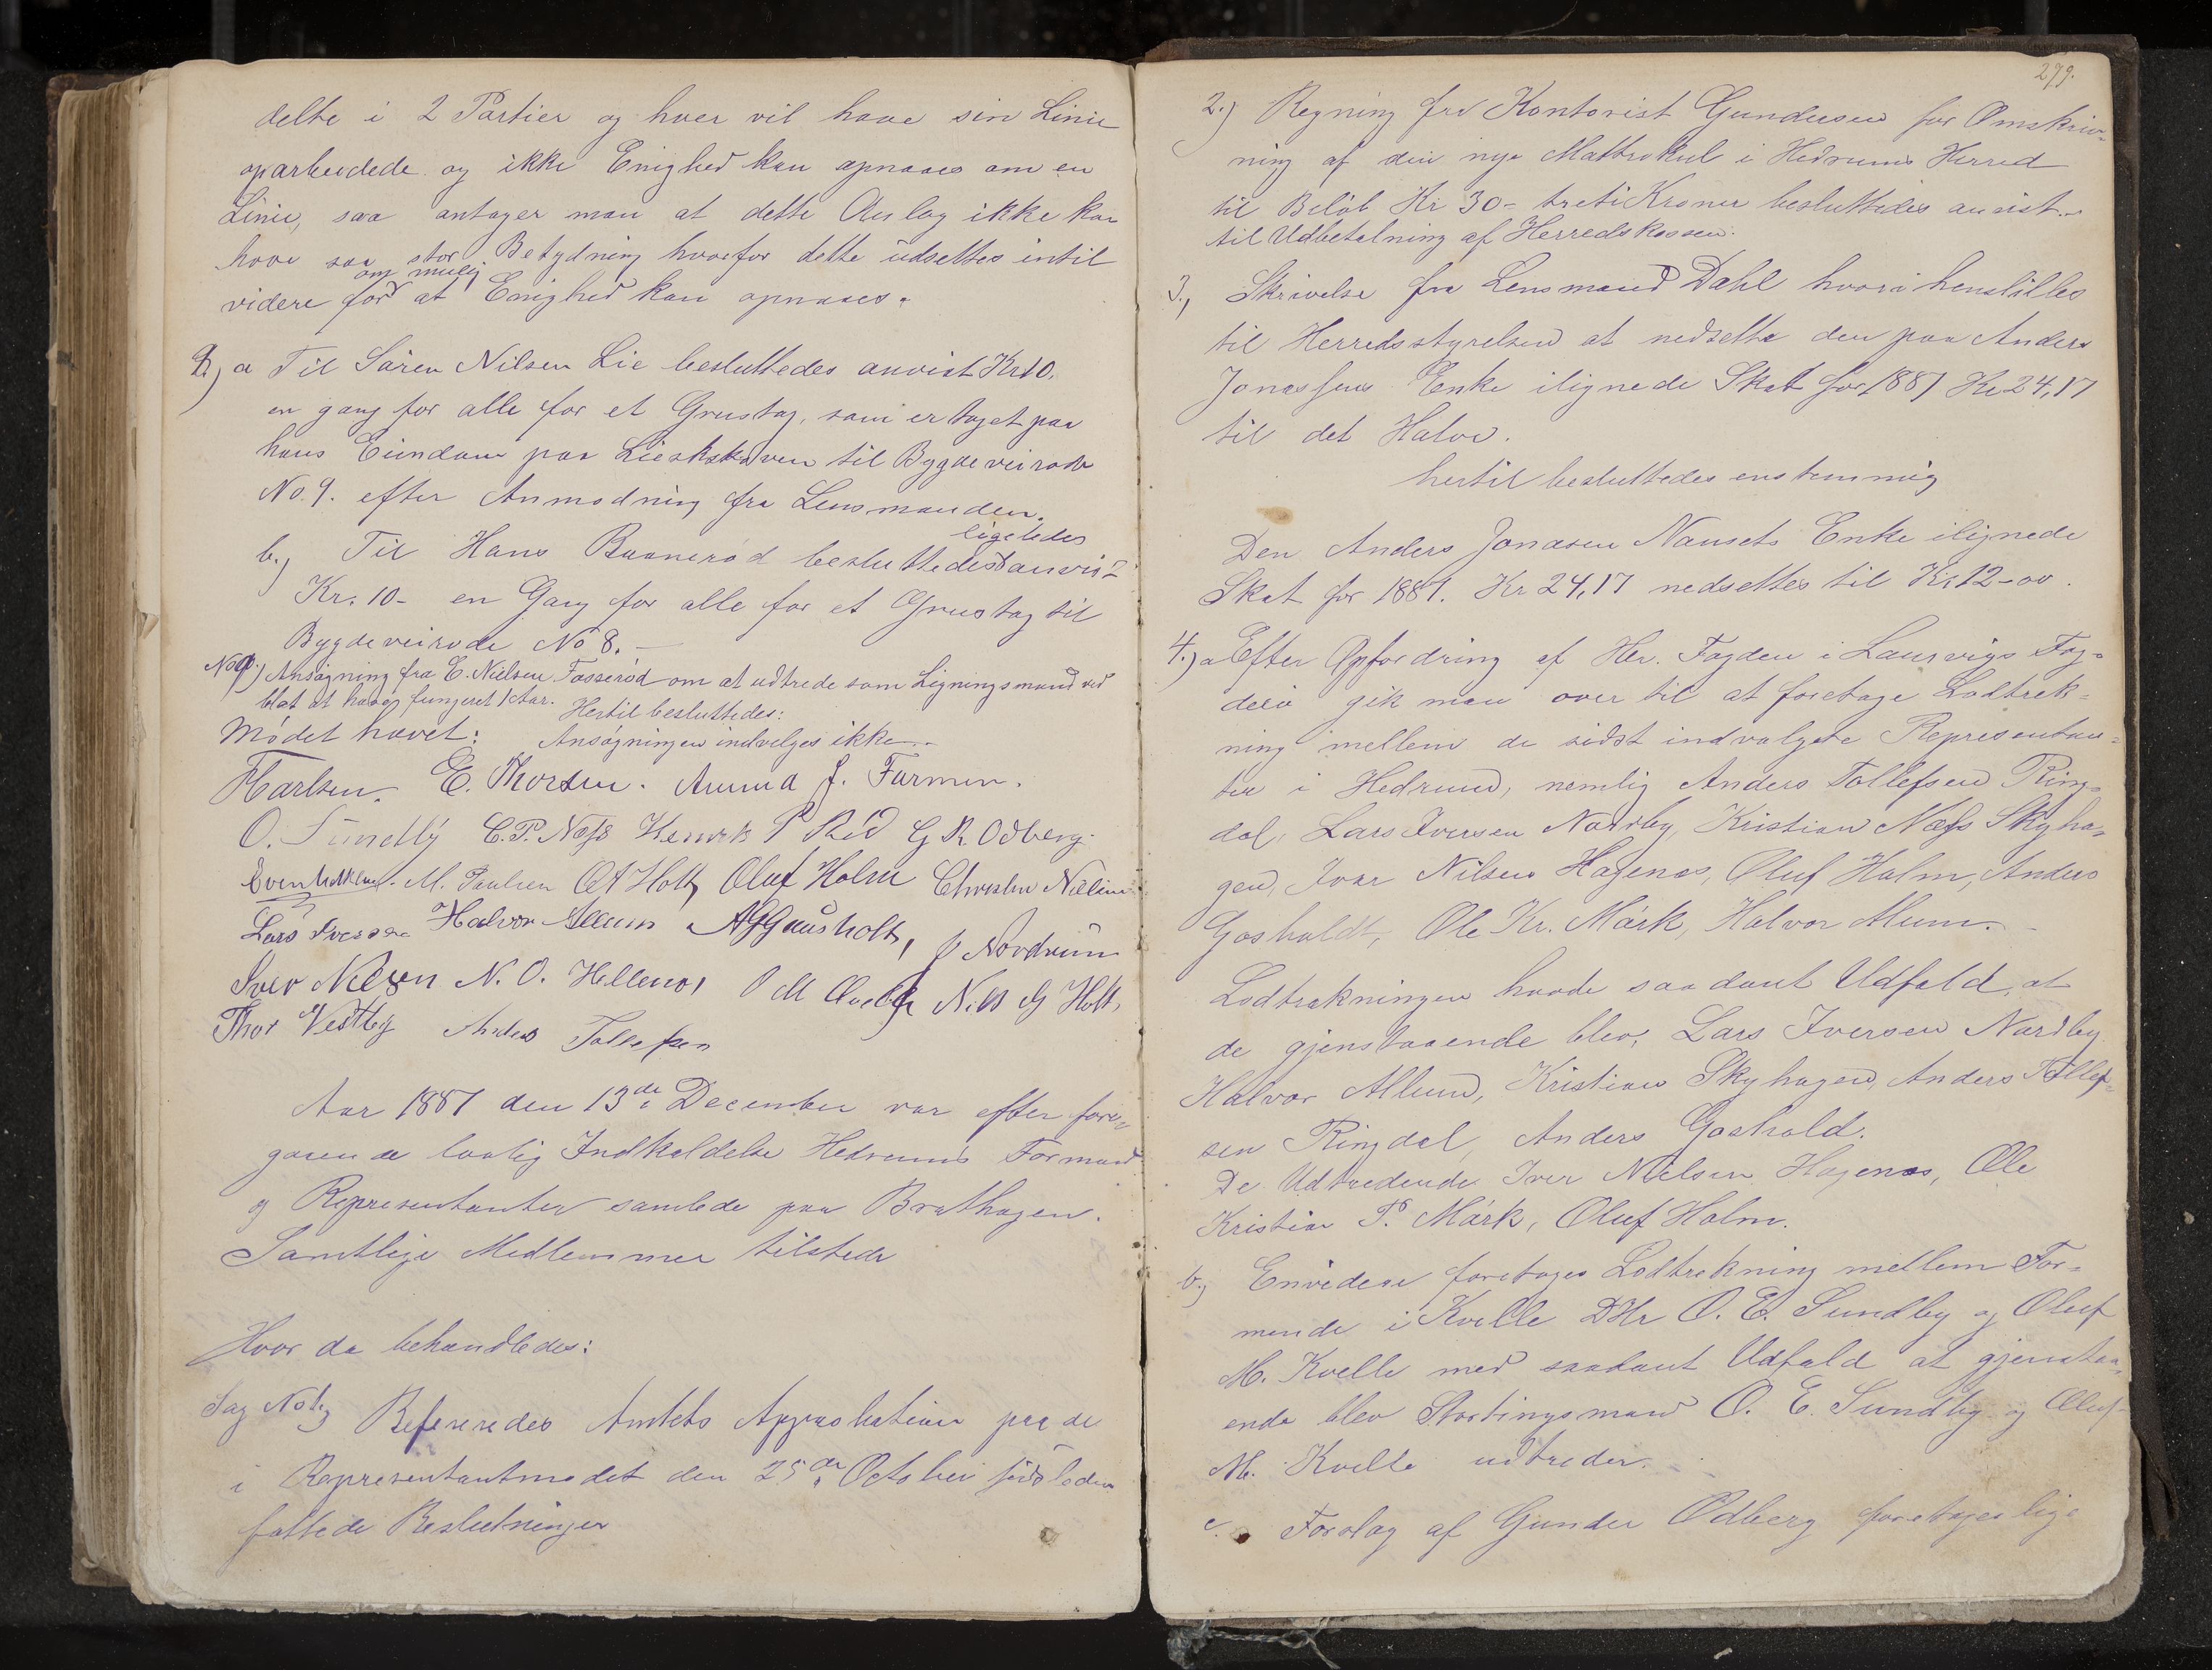 delte i 2 Partier og hver vil have sin Linie
oparbeidede og ikke Enighed kan opnaaes om en
Linie, saa antager man at dette Anslag ikke kan
have saa stor Betydning hvorfor dette udsettes intil
videre for om mulig at Enighed kan opnaaes.
8.) a Til Sören Nilsen Lie besluttedes anvist Kr10.
en gang for alle for et Grustag, som er taget paa
hans Eiendom paa Lieskskaven til Bygdeveirode
No. 9. efter Anmodning fra Lensmanden.
b.) Til Hans Baanerød besluttedes ligeledes anvist
Kr. 10- en Gang for alle for et Grustag til
Bygdeveirode No 8. —
No 9.) Ansøgning fra E. Nielsen Fosserød om at udtrede som Ligningsmand ved
blot at have fungeret 1 Aar. Hertil besluttedes:
Mødet hævet: Ansøgningen indvelges ikke.
FKarlsen. E. Thorsen. Amund J. Furmen.
O. Sundby C. P. Næss Henrik P Rid G R Odberg.
M. Paulsen O A Holt Oluf Holm Christen Nielsen
Lars Iversen Halvor Allum A G Gausholt, J Nordrum
Iver Nilsen N. O. Hellenes O M Qvelle Nils G Holt,
Thor Vestby Anders Tollefsen
Aar 1887 den 13de December var efter fore-
gaaende lovlig Indkaldelse Hedrums Formænd
og Representanter samlede paa Brathagen.
Samtlige Medlemmer tilstede
Hvor da behandledes:
Sag No 1.) Refereredes Amtets Approbation paa de
i Representantmødet den 25de October sidstleden
fattede Beslutninger
279.
2.) Regning fra Kontorist Gundersen for Omskriv-
ning af den nye Mattrikul i Hedrums Herred
til Beløb Kr 30- treti Kroner besluttedes anvist
til Udbetalning af Herredskassen.
3.) Skrivelse fra Lensmand Dahl hvori henstilles
til Herredsstyrelsen at nedsette den paa Anders
Jonassens Enke ilignede Skat for 1887 Kr 24,17
til det Halve.
hertil besluttedes enstemmig
Den Anders Jonasen Nansets Enke ilignede
Skat for 1887. Kr 24,17 nedsettes til Kr 12-00.
4.) a Efter Opfordring af Hr. Fogden i Laurvigs Fog-
deri gik man over til at foretage Lodtrek-
ning mellem de sidst indvalgte Representan-
ter i Hedrum, nemlig Anders Tollefsen Ring-
dal, Lars Iversen Nordby, Kristian Næss Skyha-
gen, Ivar Nilsen Hagenes, Oluf Holm, Anders
Gosholdt, Ole Kr. Mørk, Halvor Alum.
Lodtrekningen havde saadant Udfald, at
de gjenstaaende blev, Lars Iversen Nordby
Halvor Allum, Kristian Skyhagen, Anders Tollef-
sen Ringdal, Anders Goshold.
De Udtredende Iver Nielsen Hagenes, Ole
Kristian P. Mørk, Oluf Holm.
b.) Envidere foretages Lodtrekning mellem For-
mende i Kvelle DHr O. E. Sundby og Oluf
M. Kvelle med saadant Udfald at gjenstaa-
ende blev Stortingsmand O. E. Sundby og Oluf
M. Kvelle udtreder.
c. Forslag af Gunder Odberg foretages lige